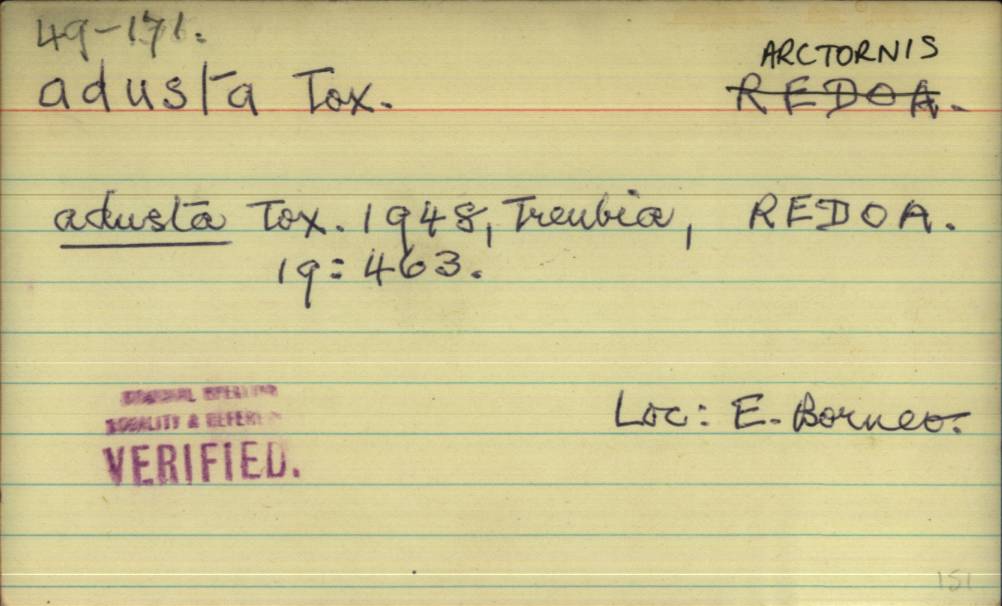 49-171.
ARCTORNIS
adusta Tox. REDOA.
adusta Tox. 1948, Treubia, REDOA.
19: 463.
ORIGINAL SPELLING
LOCALITY & REFERENCE
VERIFIED.
Loc: E. Borneo.
151